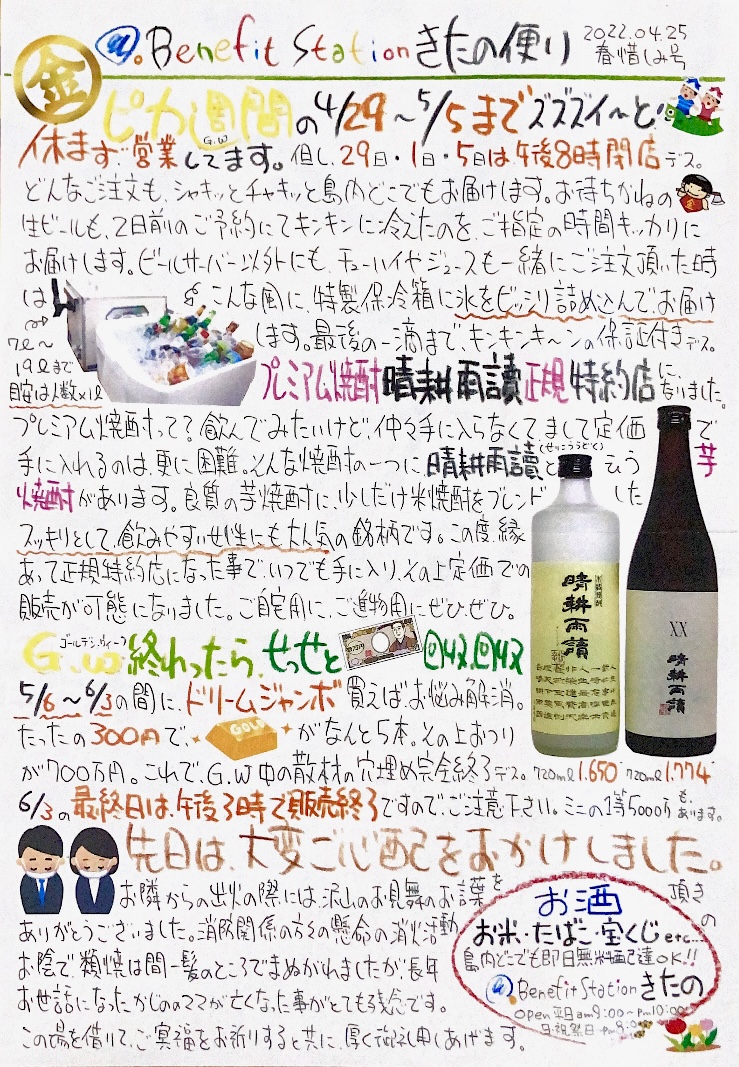 金
@. Benefit Station きたの便り
2022.04.25
春惜しみ号
ピカ週間の4/29〜5/5までズズズイ〜と
G.W
休まず営業してます。但し、29日・1日・5日は午後8時閉店デス。
どんなご注文も、シャキッとチャキッと島内どこでもお届けます。お待ちかねの
生ビールも、2日前のご予約にてキンキンに冷えたのを、ご指定の時間キッカリに
お届けします。ビールサーバー以外にも、チューハイやジュースも一緒にご注文頂いた時
は こんな風に、特製保冷箱に氷をビッシリ詰め込んで、お届け
します。最後の一滴まで、キンキンキ〜ンの保証付きデス。
7ℓ〜
19ℓまで
目安は人数×1ℓ
プレミアム焼酎 晴耕雨讀 正規特約店に、なりました。
プレミアム焼酎って?飲んでみたいけど、仲々手に入らなくて、まして定価で
手に入れるのは、更に困難。そんな焼酎の一つに、晴耕雨讀という芋
(せいこううどく)
焼酎があります。良質の芋焼酎に、少しだけ米焼酎をブレンドした
スッキリとして、飲みやすい女性にも大人気の銘柄です。この度、縁
あって正規特約店になった事で、いつでも手に入り、その上定価での
販売が可能になりました。ご自宅用に、ご進物用にぜひ、ぜひ。
ゴールデンウィーク
G.W終わったら、せっせと
5/6〜6/3の間に、ドリームジャンボ買えば、お悩み解消。
たったの300円で、GOLDがなんと5本。その上おつり
が700万円。これで、G.W中の散財の穴埋め完全終了デス。
720㎖ 1.650 720㎖ 1.774
6/3の最終日は、午後3時で販売終了ですので、ご注意下さい。ミニの1等5000万も、あります。
晴耕雨讀
XX
晴耕雨讀
先日は、大変ご心配をおかけしました。
お隣からの出火の際には、沢山のお見舞のお葉を頂き
ありがとうございました。消防関係の方々の懸命の消火活動の
お陰で、類焼は間一髪のところでまぬがれましたが、長年
お世話になったかじかのママが亡くなった事がとても残念です。
この場を借りて、ご冥福をお祈りすると共に、厚く御礼申しあげます。
お酒
お米・たばこ・宝くじetc...
島内どこでも即日無料配達OK!!
@. Benefit Station きたの
open 平日am9:00〜pm10:00
日祝祭日-pm9:00